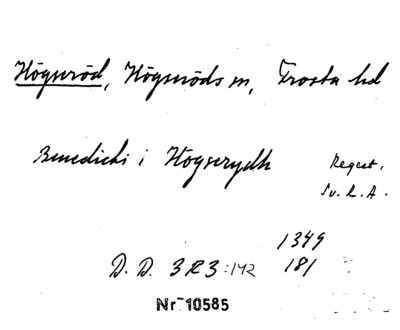 Högseröd, Högseröds sn, Frosta hd
Benedicti i Hogserydh Regest,
Sv. R. A.
1349
D. D. 3 R 3:142 181
Nr 10585